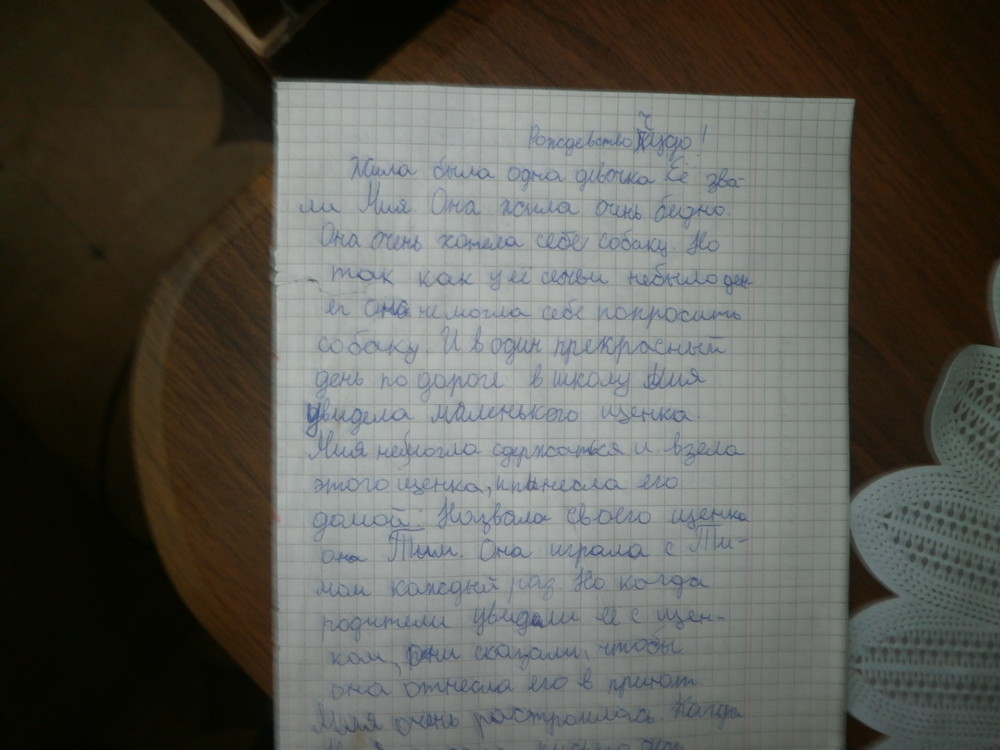 Рождевство Чудо!
Жила была одна девочка Её зва-
ли Мия. Она жила очень бедно.
Она очень хотела себе собаку. Но
так как у её семьи небыло ден-
ег она немогла себе попросить
собаку. И в один прекрасный
день по дороге в школу Мия
увидела маленького щенка.
Мия несмогла сдержаться и взела
этого щенка, и принесла его
домой. Назвала своего щенка
она Тим. Она играла с Ти-
мом каждый раз. Но когда
родители увидели её с щен-
ком, они сказали, чтобы
она отнесла его в приют.
Мия очень растроилась. Когда